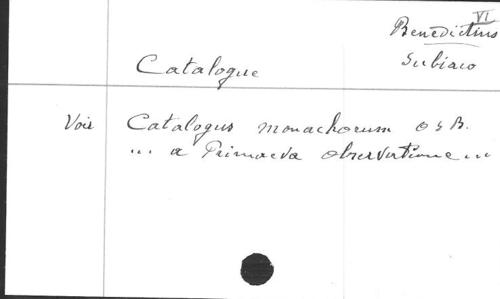 VI
Benedictins
Subiaco
Catalogue
Voir Catalogus monachorum OSB.
... a Primaeva observatione ...